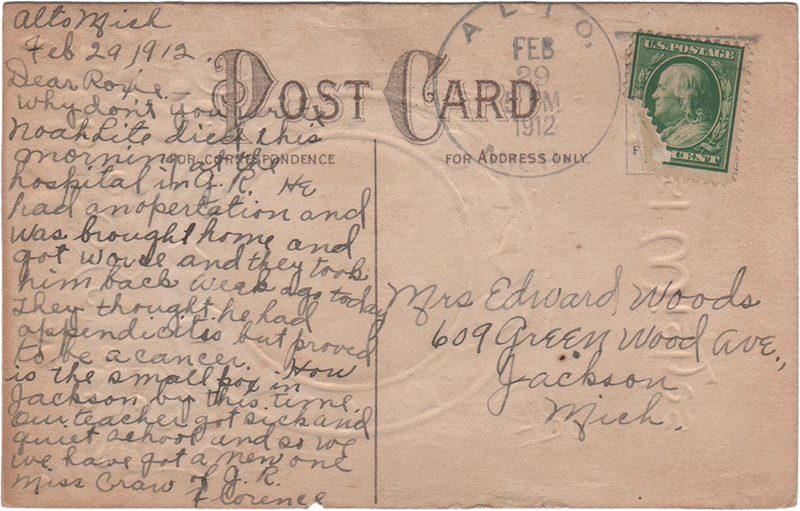 Alto Mich
Feb 29 1912.
Dear Roxie.
Why don't you write
Noah Lite died this
morning at the
hospital in G. R. He
had anopertation and
was brought home and
got worse and they took
him back week ago today
They thought he had
appendicitis but proved
to be a cancer. How
is the small pox in
Jackson by this time.
Our teacher got sick and
quiet school and so we
we have got a new one
Miss Craw of G. R.
Florence
POST CARD
FOR CORRESPONDENCE
FOR ADDRESS ONLY.
ALTO,
FEB
29
PM
1912
U.S. POSTAGE
CENT
Mrs Edward Woods
609 Green Wood Ave.,
Jackson
Mich.